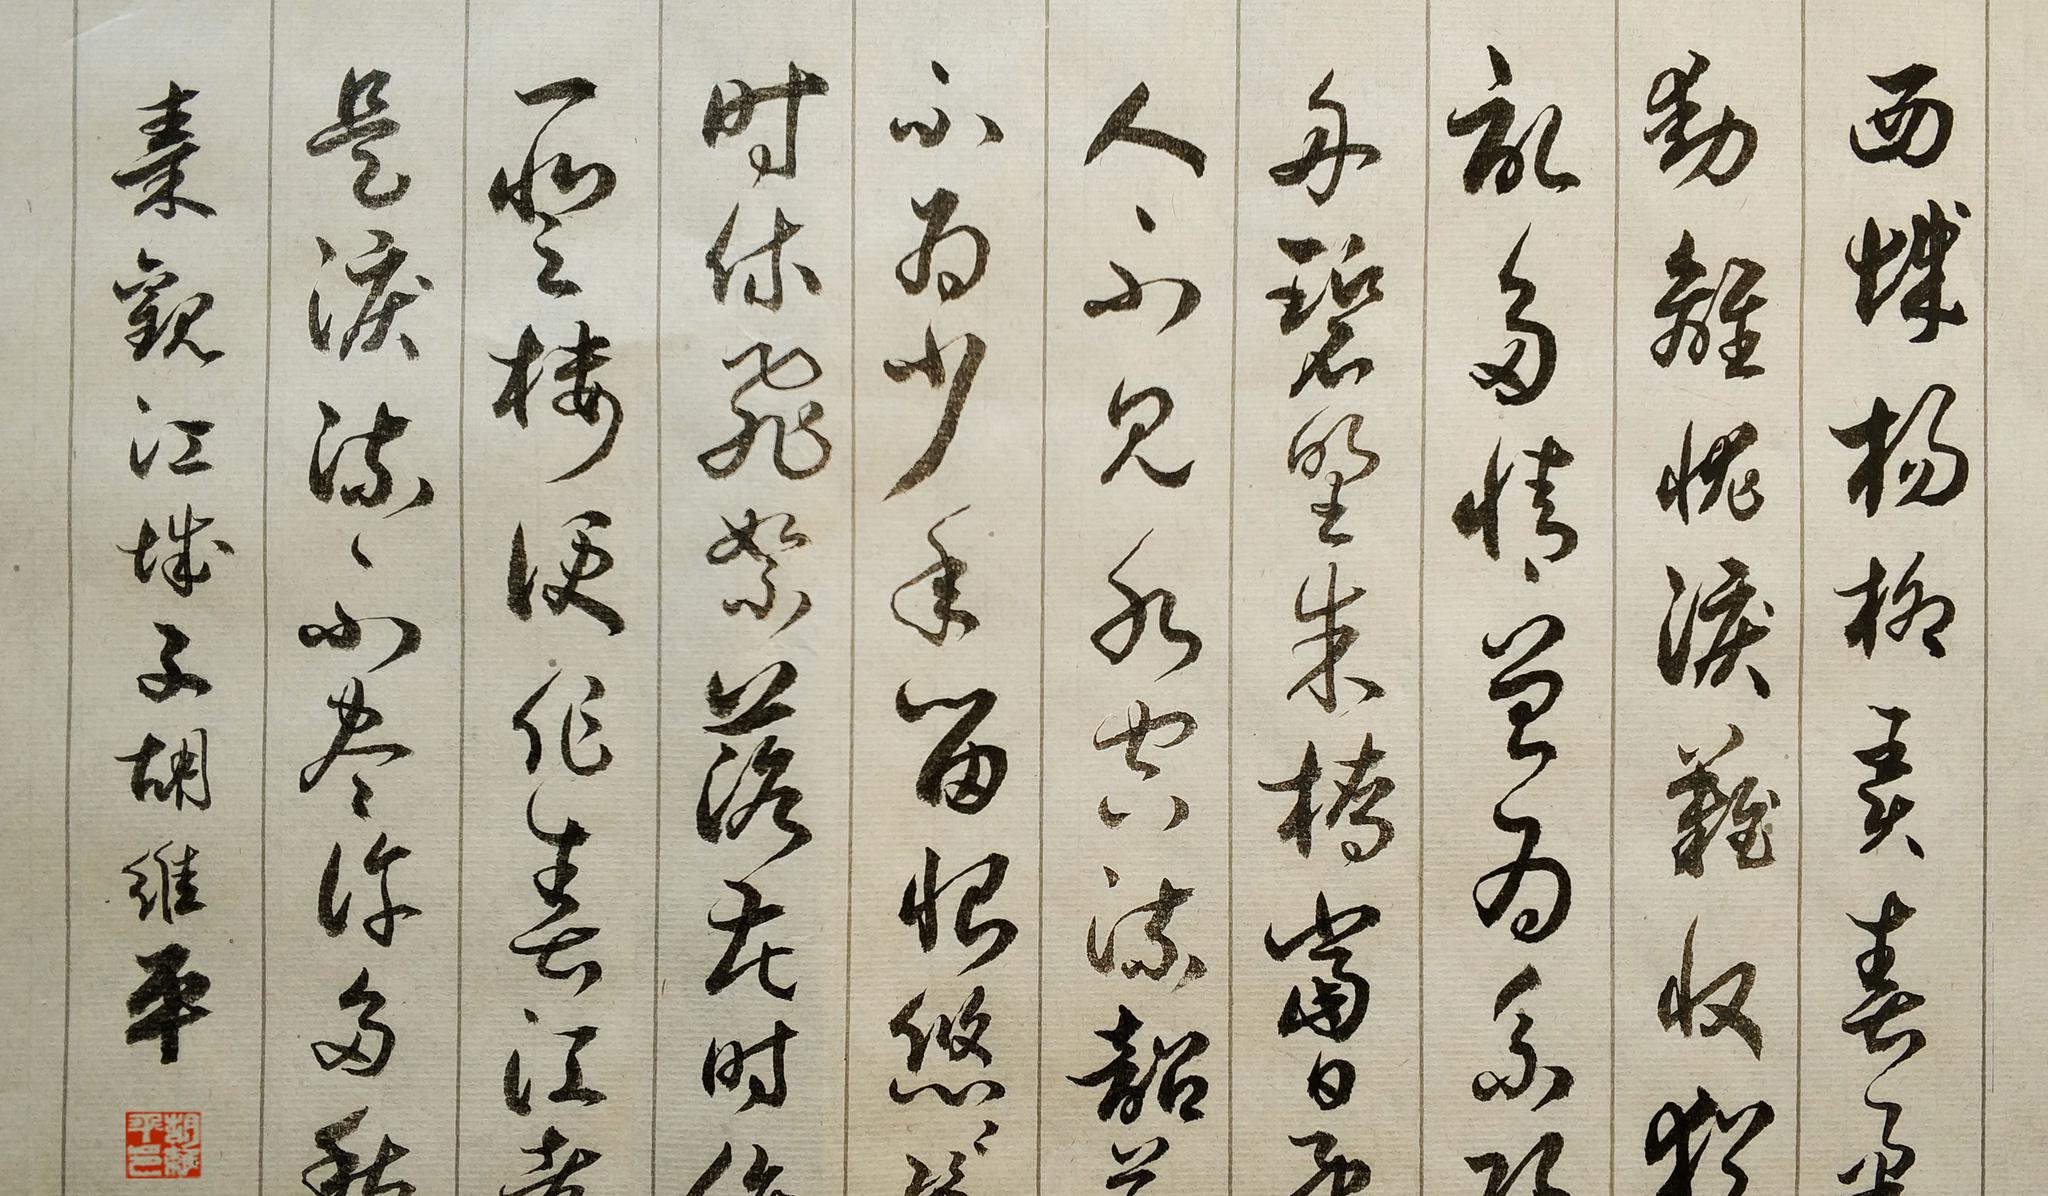 西城杨柳弄春柔
動離忧淚難收猶
記多情曾为系归
舟碧野朱橋當日事
人不见水空流韶华
不为少年留恨悠悠几
时休飛絮落花时候
一登楼便作春江都
是淚流不尽许多愁
秦觀江城子胡維平